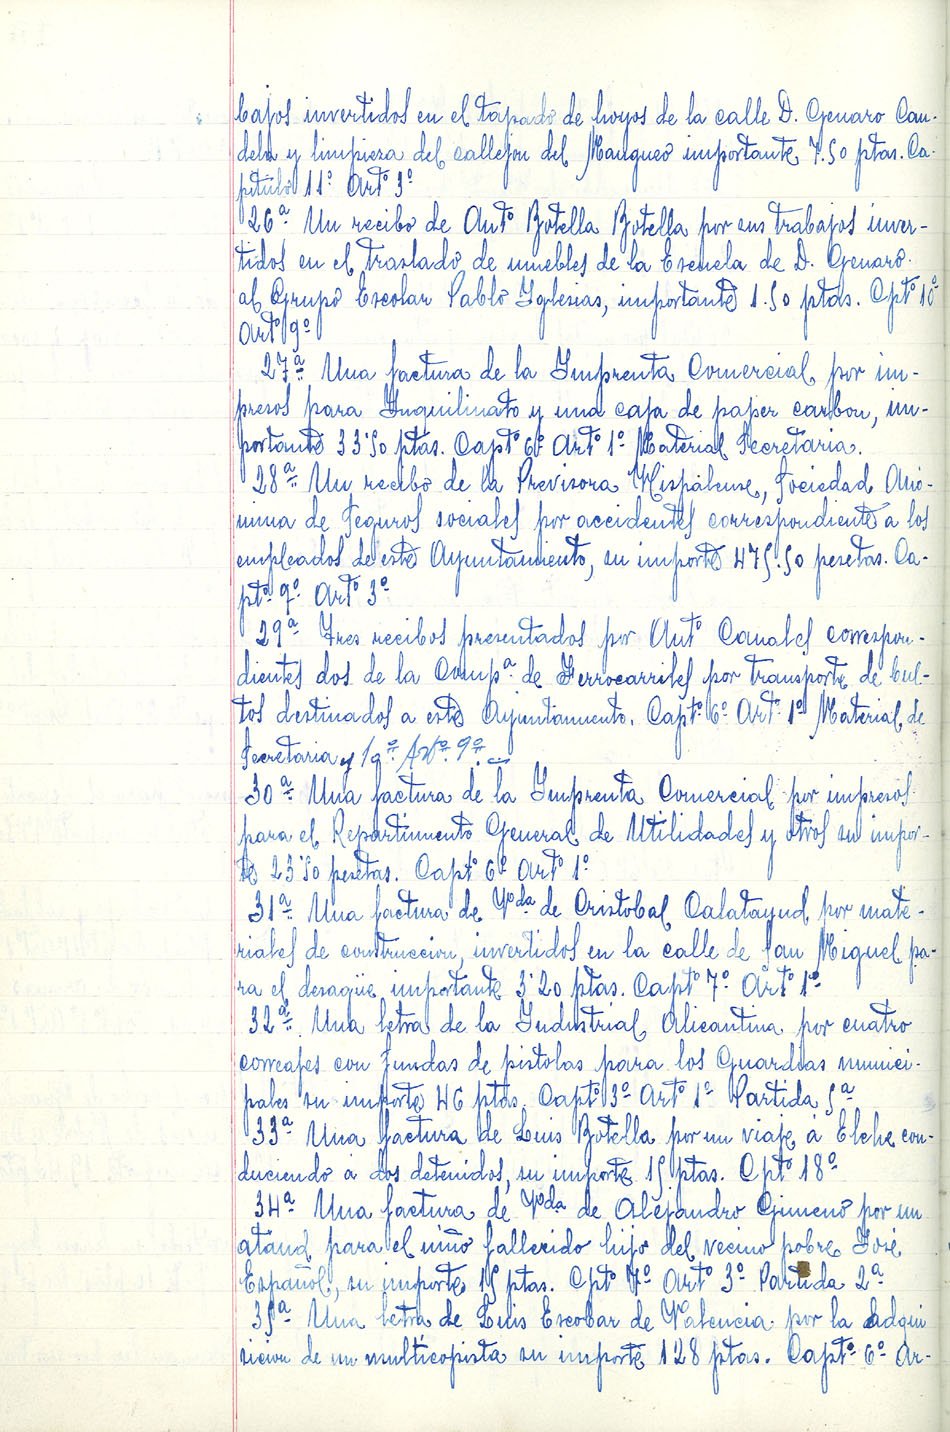 bajos invertidos en el tapado de hoyos de la calle D. Genaro Can-
dela y limpieza del callejon del Mangueo importante 7.50 ptas. Ca-
pitulo 11º Artº 3º
26ª Un recibo de Antº Botella Botella por sus trabajos inver-
tidos en el traslado de muebles de la Escuela de D. Genaro
al Grupo Escolar Pablo Iglesias, importante 1.50 ptas. Cptº 10º
Artº 9º
27ª Una factura de la Imprenta Comercial por im-
presos para Inquilinato y una caja de paper carbon, im-
portante 33'50 ptas. Captº 6º Artº 1º Material Secretaria.
28ª Un recibo de la Previsora Hispalense, Sociedad Anó-
nima de Seguros sociales por accidentes correspondiente a los
empleados de este Ayuntamiento, su importe 475.50 pesetas. Ca-
ptº 9º Artº 3º
29ª Tres recibos presentados por Antº Canales correspon-
dientes dos de la Compª de Ferrocarriles por transporte de bul-
tos destinados a este Ayuntamiento. Captº 6º Artº 1º Material de
Secretaria y 1ª Artº 9º
30ª Una factura de la Imprenta Comercial por impresos
para el Repartimento General de Utilidades y otros su impor-
te 23'50 pesetas. Captº 6º Artº 1º
31ª Una factura de Vda de Cristobal Calatayud por mate-
riales de construccion, invertidos en la calle de San Miguel pa-
ra el desagüe importante 3'20 ptas. Captº 7º Artº 1º
32ª Una letra de la Industrial Alicantina por cuatro
correajes con fundas de pistolas para los Guardias munici-
pales su importe 46 ptas. Captº 3º Artº 1º Partida 5ª
33ª Una factura de Luis Botella por un viaje á Elche con-
duciendo á dos detenidos, su importe 15 ptas. Cptº 18º
34ª Una factura de Vda de Alejandro Gimeno por un
ataud para el niño fallecido hijo del vecino pobre José
Español, su importe 15 ptas. Cptº 7º Artº 3º Partida 2ª
35ª Una letra de Luis Escobar de Valencia por la adqui
sicion de un multicopista su importe 128 ptas. Captº 6º Ar-